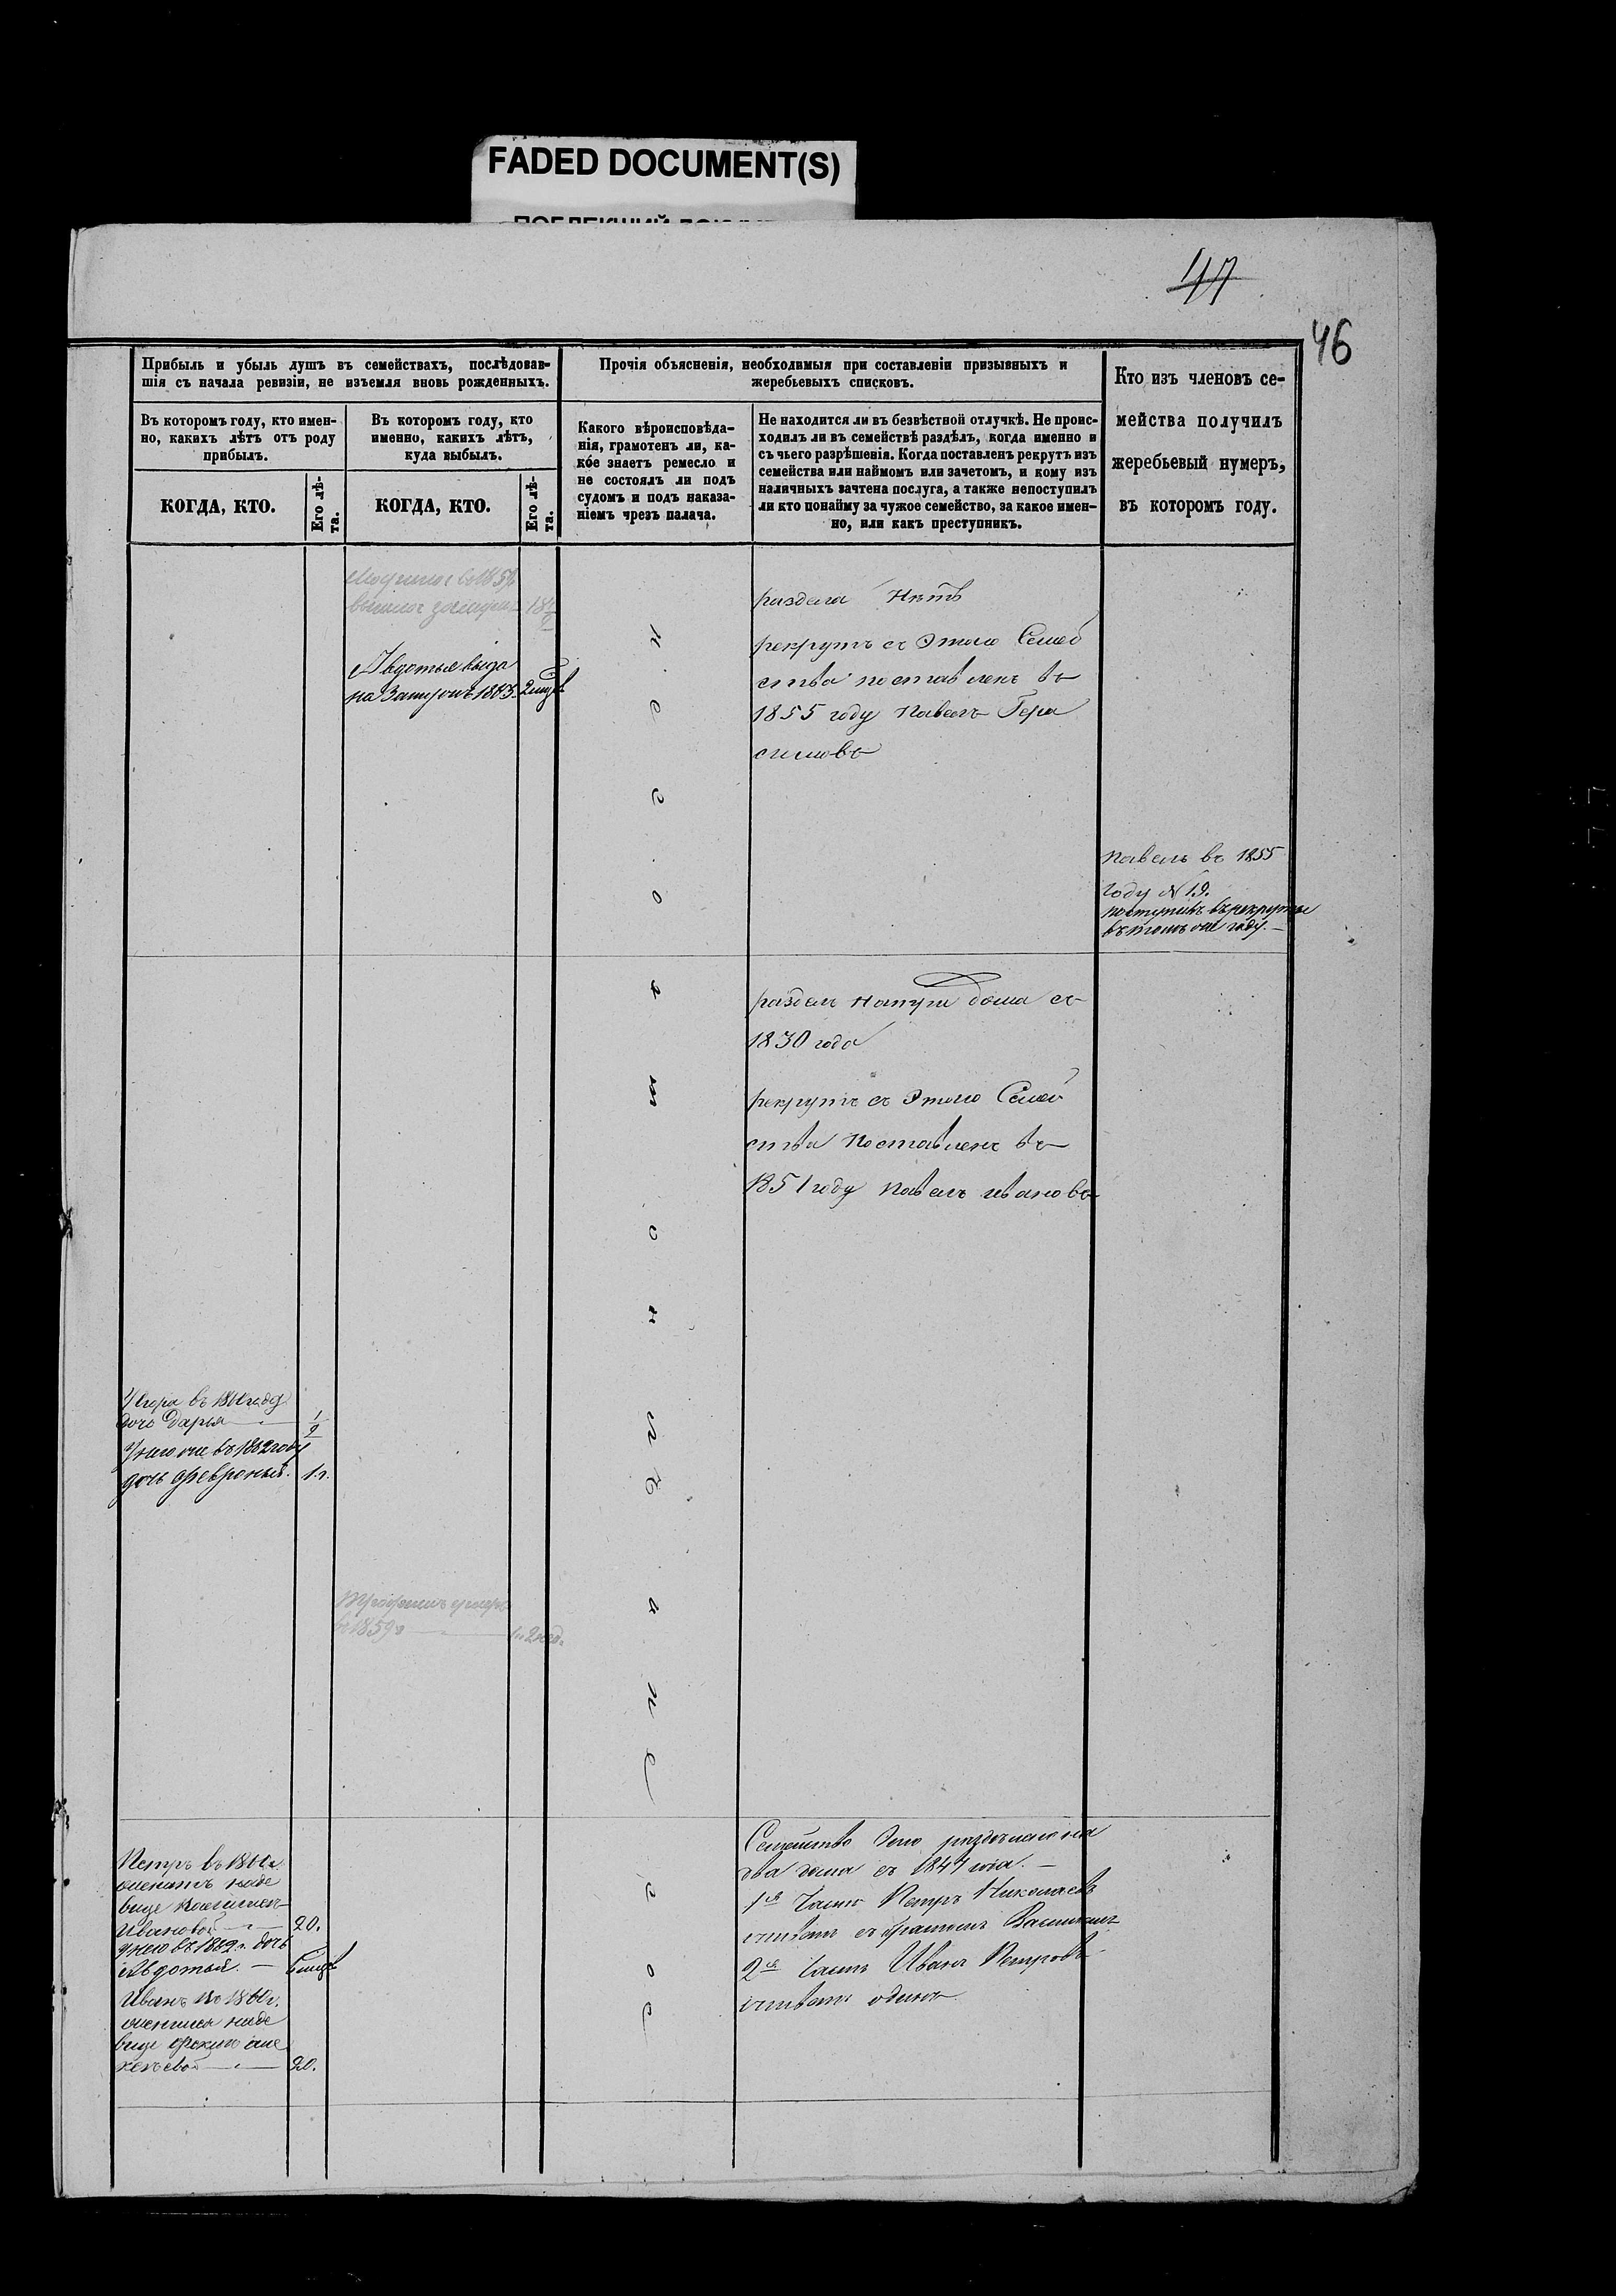 FADED DOCUMENT(S)
47
46
Прибыль и убыль душъ въ семействахъ, послѣдовав-
шія съ начала ревизіи, не изъемля вновь рожденныхъ.
Прочія объясненія, необходимыя при составленіи призывныхъ и
жеребьевыхъ списковъ.
Кто изъ членовъ се-
мейства получилъ
жеребьевый нумеръ,
въ которомъ году.
Въ которомъ году, кто имен-
но, какихъ лѣтъ отъ роду
прибылъ.
Въ которомъ году, кто
именно, какихъ лѣтъ,
куда выбылъ.
Какого вѣроисповѣда-
нія, грамотенъ ли, ка-
кое знаетъ ремесло и
не состоялъ ли подъ
судомъ и подъ наказа-
ніемъ чрезъ палача.
Не находится ли въ безвѣстной отлучкѣ. Не проис-
ходилъ ли въ семействѣ раздѣлъ, когда именно и
съ чьего разрѣшенія. Когда поставленъ рекрутъ изъ
семейства или наймомъ или зачетомъ, и кому изъ
наличныхъ зачтена послуга, а также непоступилъ
ли кто понайму за чужое семейство, за какое имен-
но, или какъ преступникъ.
КОГДА, КТО.
Его лѣ-
та.
КОГДА, КТО.
Его лѣ-
та.
в 1859
Авдотья выда
на Замужъ 1863
раздела Нѣтъ
рекрутъ съ Этого Семей
ства поставленъ въ
1855 году павелъ Гера
симовъ
павелъ въ 1855
году № 19.
поступилъ въ рекруты
въ томъ же году.
разделъ натри дома съ
1830 года
рекрутъ съ Этого Семей
ства поставленъ въ
1851 году павелъ ивановъ
дочь Дарья 1/2
У него же въ 1862 году
дочь Февронья. 1 г.
Трофимъ умеръ
въ 1859 г
Петръ въ 1861 г.
женатъ наде
вице
Ивановой 20.
у него въ 1862 г. дочь
Авдотья.
Иванъ въ 1861 г.
женился наде
вице
20.
Семейство
два дома съ 1847 года.
1я часть Петръ Николаевъ
съ братомъ
2я часть Иванъ Петровъ
одинъ